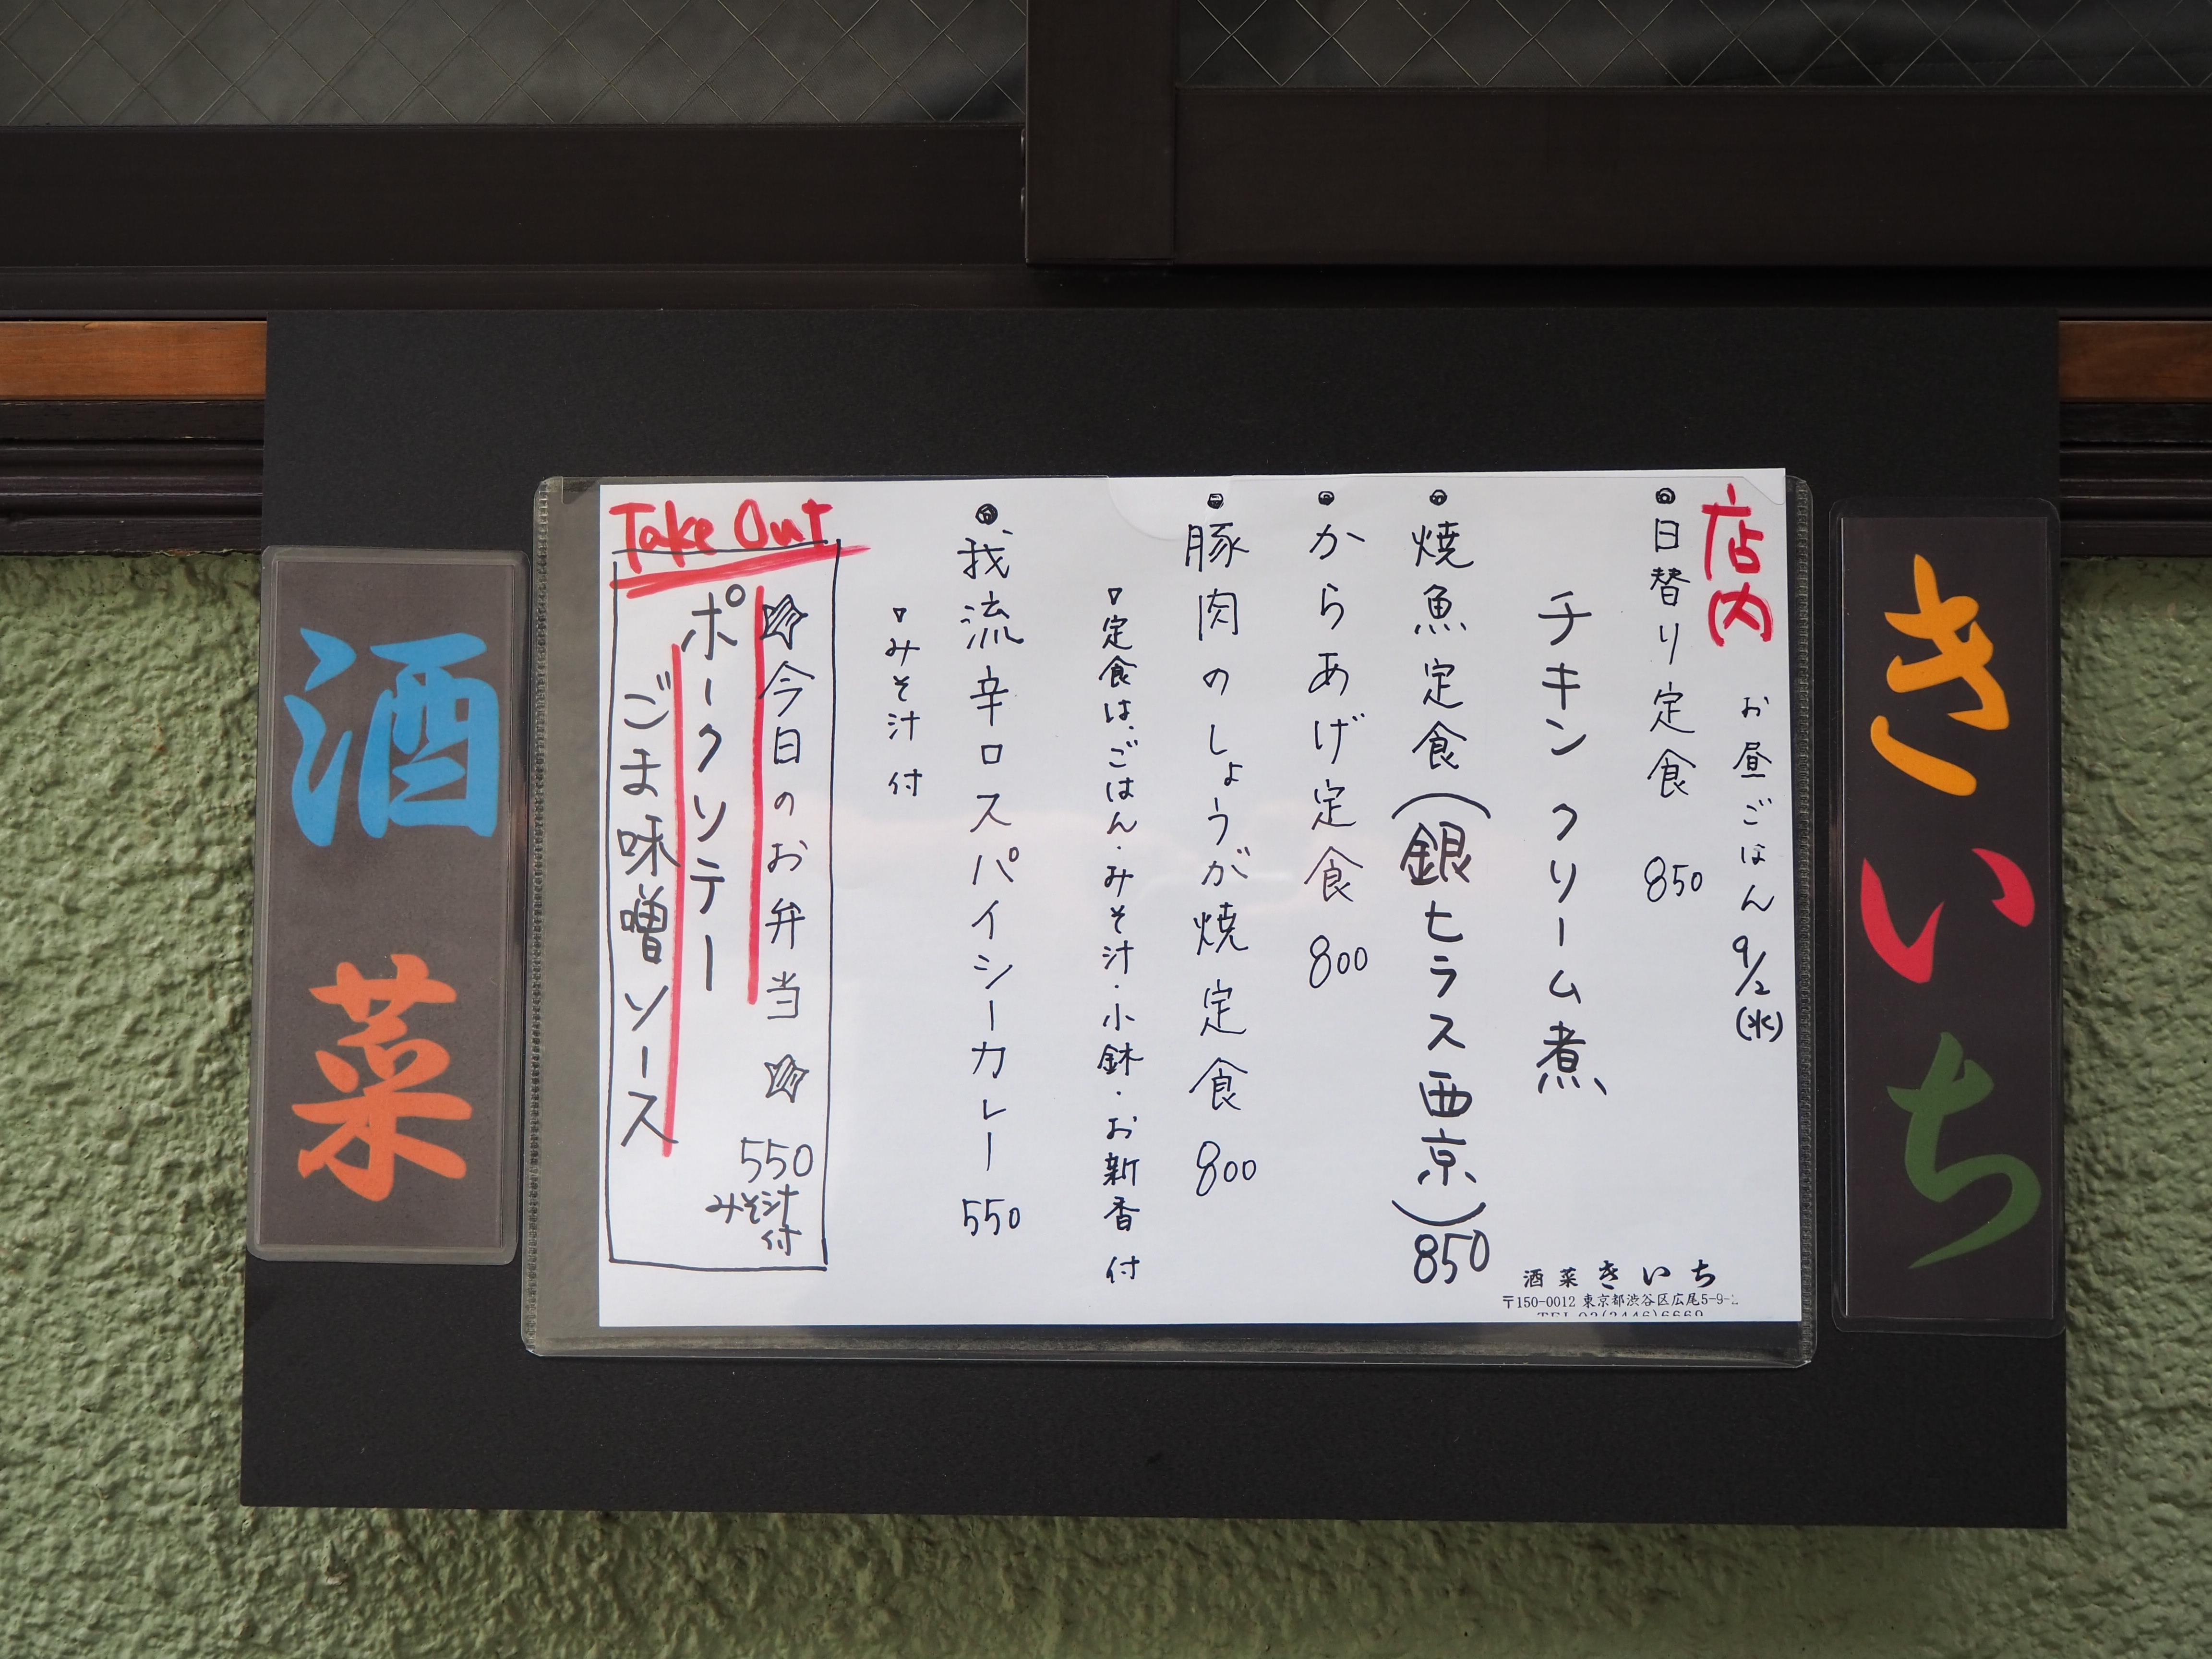 きいち
店内
お昼ごはん 9/2(水)
日替り定食 850
チキンクリーム煮
焼魚定食(銀ヒラス西京)850
からあげ定食 800
豚肉のしょうが焼定食 800
▽定食は、ごはん・みそ汁・小鉢・お新香付
我流辛口スパイシーカレー 550
▽みそ汁付
Take Out
☆今日のお弁当☆ 550
みそ汁付
ポークソテー
ごま味噌ソース
酒菜きいち
〒150-0012 東京都渋谷区広尾5-9-
TEL03(3446)6669
酒菜